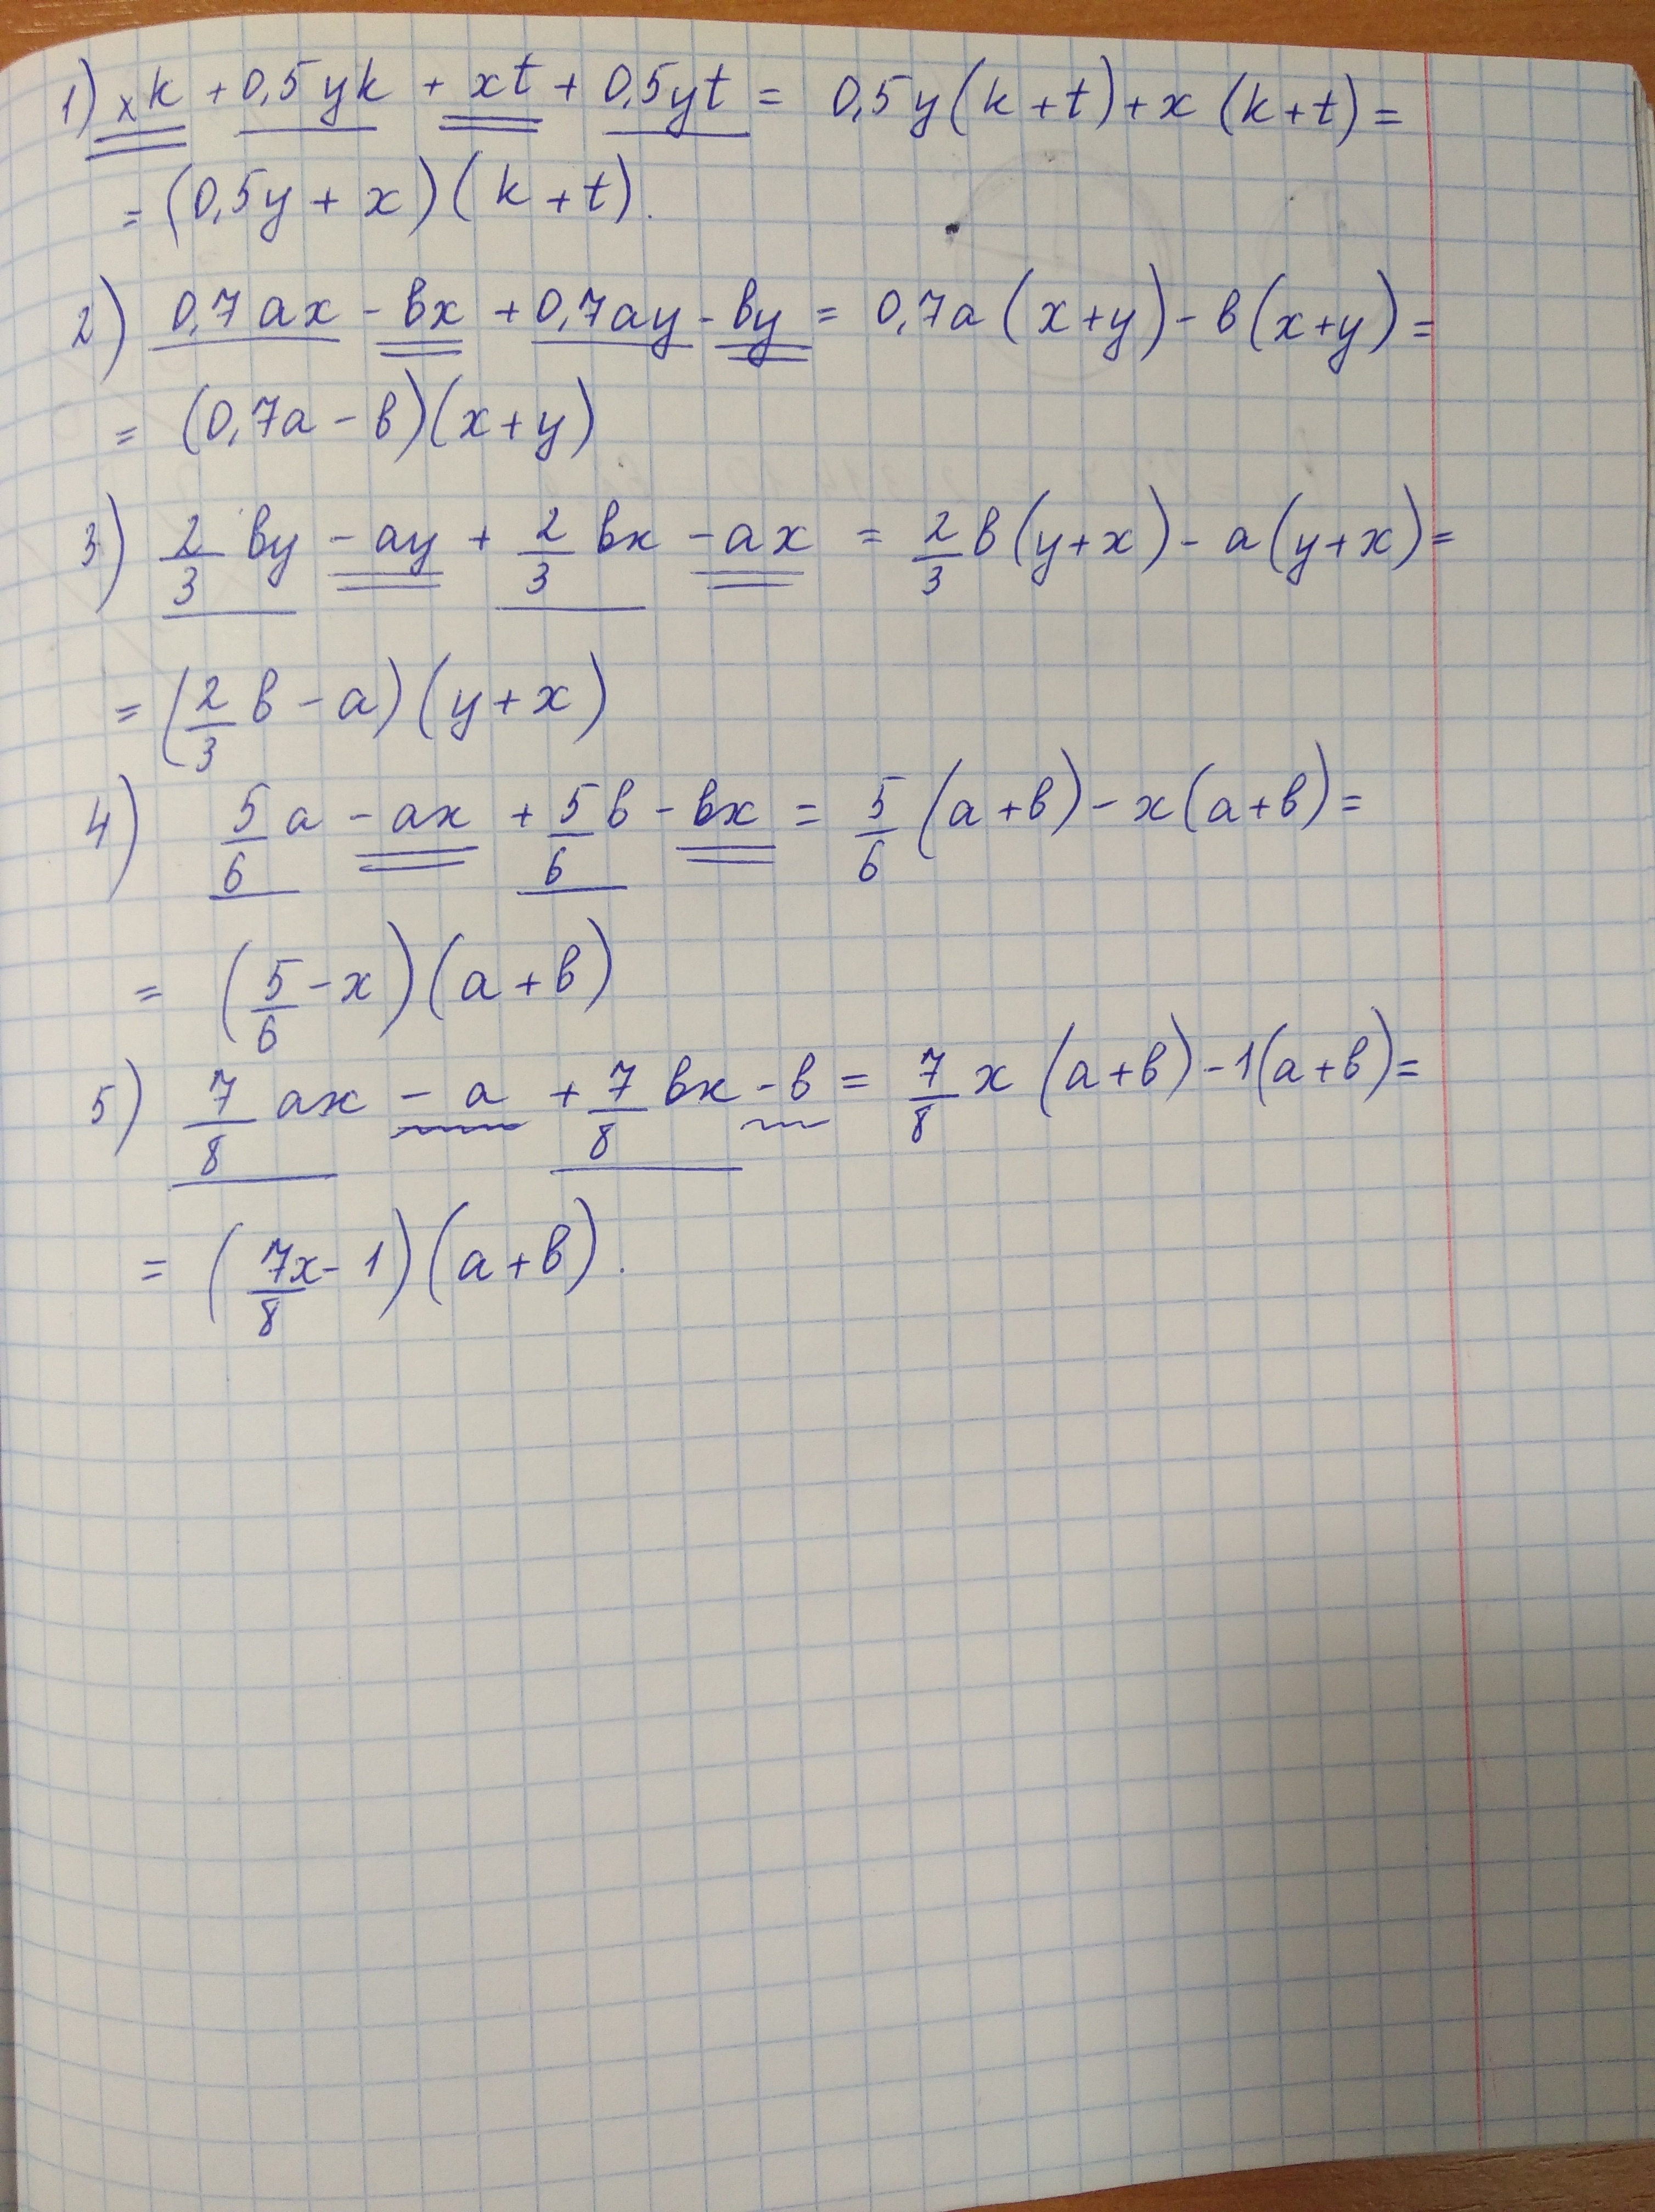 1) xk + 0,5yk + xt + 0,5yt = 0,5y(k+t)+x(k+t)=
= (0,5y + x)(k+t).
2) 0,7ax - bx + 0,7ay - by = 0,7a(x+y) - b(x+y)=
= (0,7a - b)(x+y)
3) 2/3 by - ay + 2/3 bx - ax = 2/3 b(y+x) - a(y+x)=
= (2/3 b - a)(y+x)
4) 5/6 a - ax + 5/6 b - bx = 5/6 (a+b) - x(a+b)=
= (5/6 - x)(a+b)
5) 7/8 ax - a + 7/8 bx - b = 7/8 x (a+b) - 1(a+b)=
= (7x/8 - 1)(a+b).